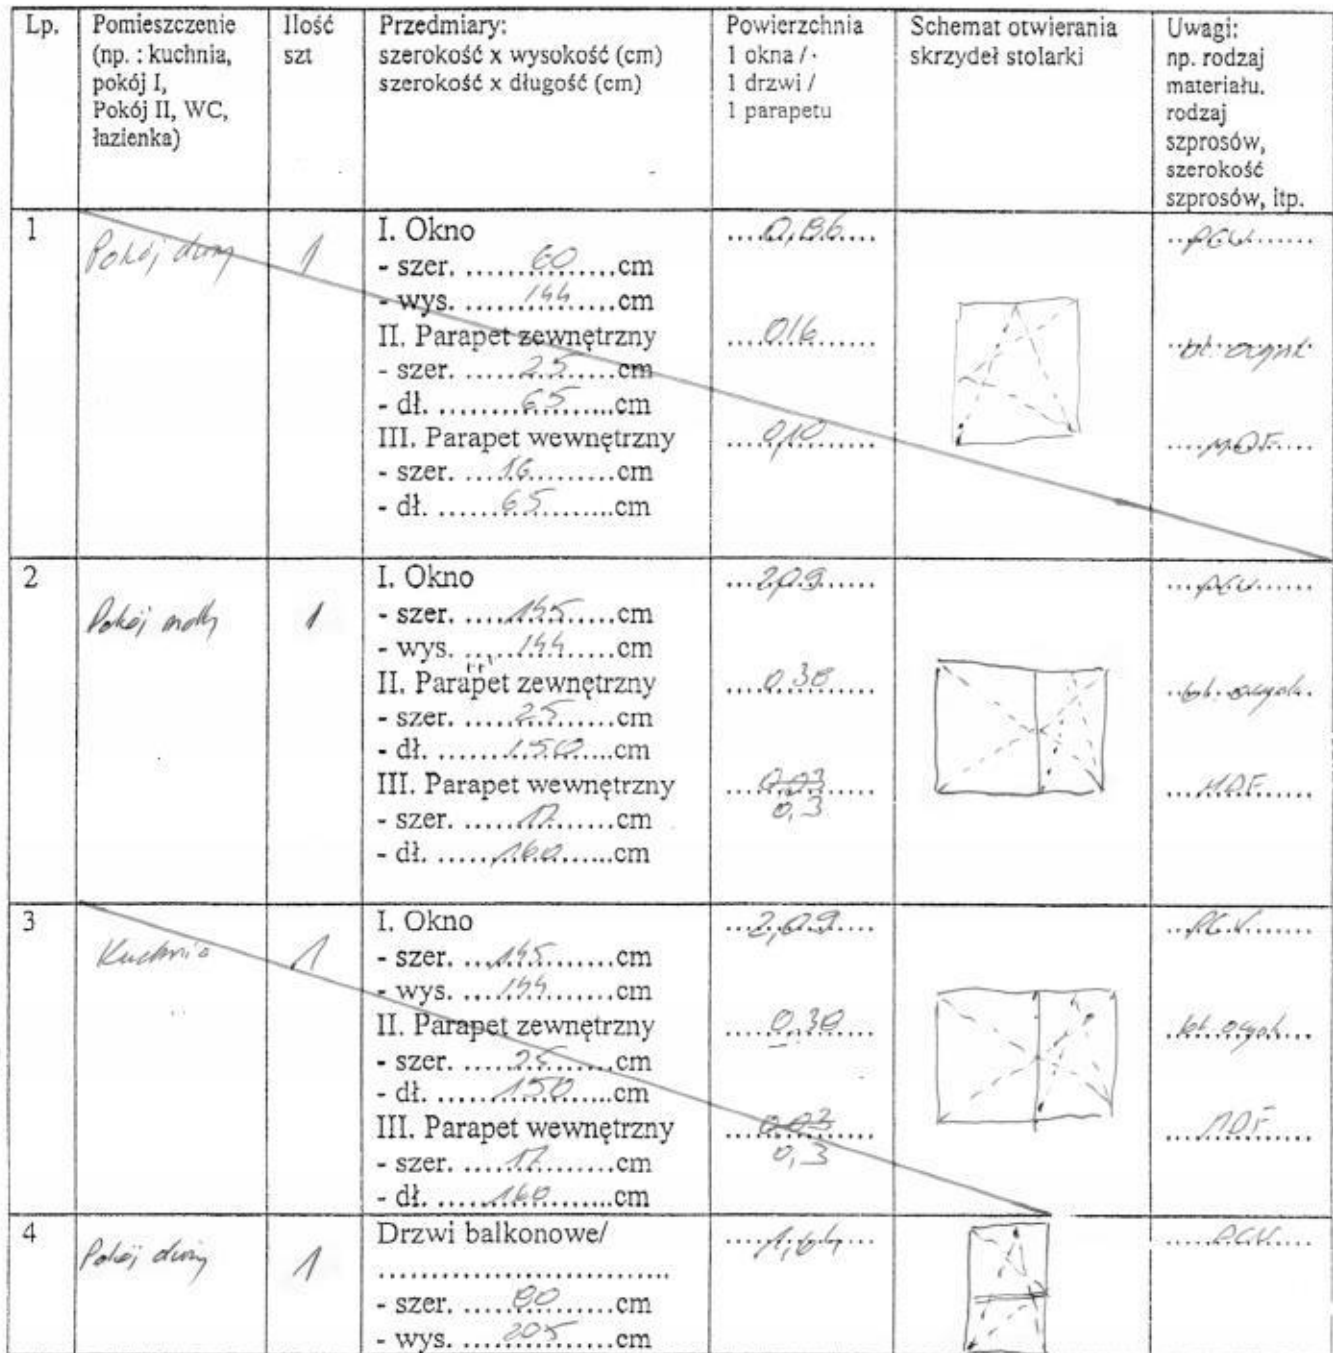 Lp.
Pomieszczenie
(np. : kuchnia,
pokój I,
Pokój II, WC,
łazienka)
Ilość
szt
Przedmiary:
szerokość x wysokość (cm)
szerokość x długość (cm)
Powierzchnia
1 okna /
1 drzwi /
1 parapetu
Schemat otwierania
skrzydeł stolarki
Uwagi:
np. rodzaj
materiału.
rodzaj
szprosów,
szerokość
szprosów, itp.
1
Pokój duży
1
I. Okno
- szer. ......60......cm
- wys. ......144......cm
II. Parapet zewnętrzny
- szer. ......25......cm
- dł. ......65......cm
III. Parapet wewnętrzny
- szer. ......16......cm
- dł. ......65......cm
0,86
0,16
0,10
PCV
bl. ocynk
MDF
2
Pokój mały
1
I. Okno
- szer. ......145......cm
- wys. ......144......cm
II. Parapet zewnętrzny
- szer. ......25......cm
- dł. ......150......cm
III. Parapet wewnętrzny
- szer. ......17......cm
- dł. ......160......cm
2,09
0,38
0,03
0,3
PCV
bl. ocynk.
MDF
3
Kuchnia
1
I. Okno
- szer. ......145......cm
- wys. ......144......cm
II. Parapet zewnętrzny
- szer. ......25......cm
- dł. ......150......cm
III. Parapet wewnętrzny
- szer. ......17......cm
- dł. ......160......cm
2,09
0,38
0,03
0,3
PCV
bl. ocynk
MDF
4
Pokój duży
1
Drzwi balkonowe/
..............................
- szer. ......80......cm
- wys. ......205......cm
1,64
PCV